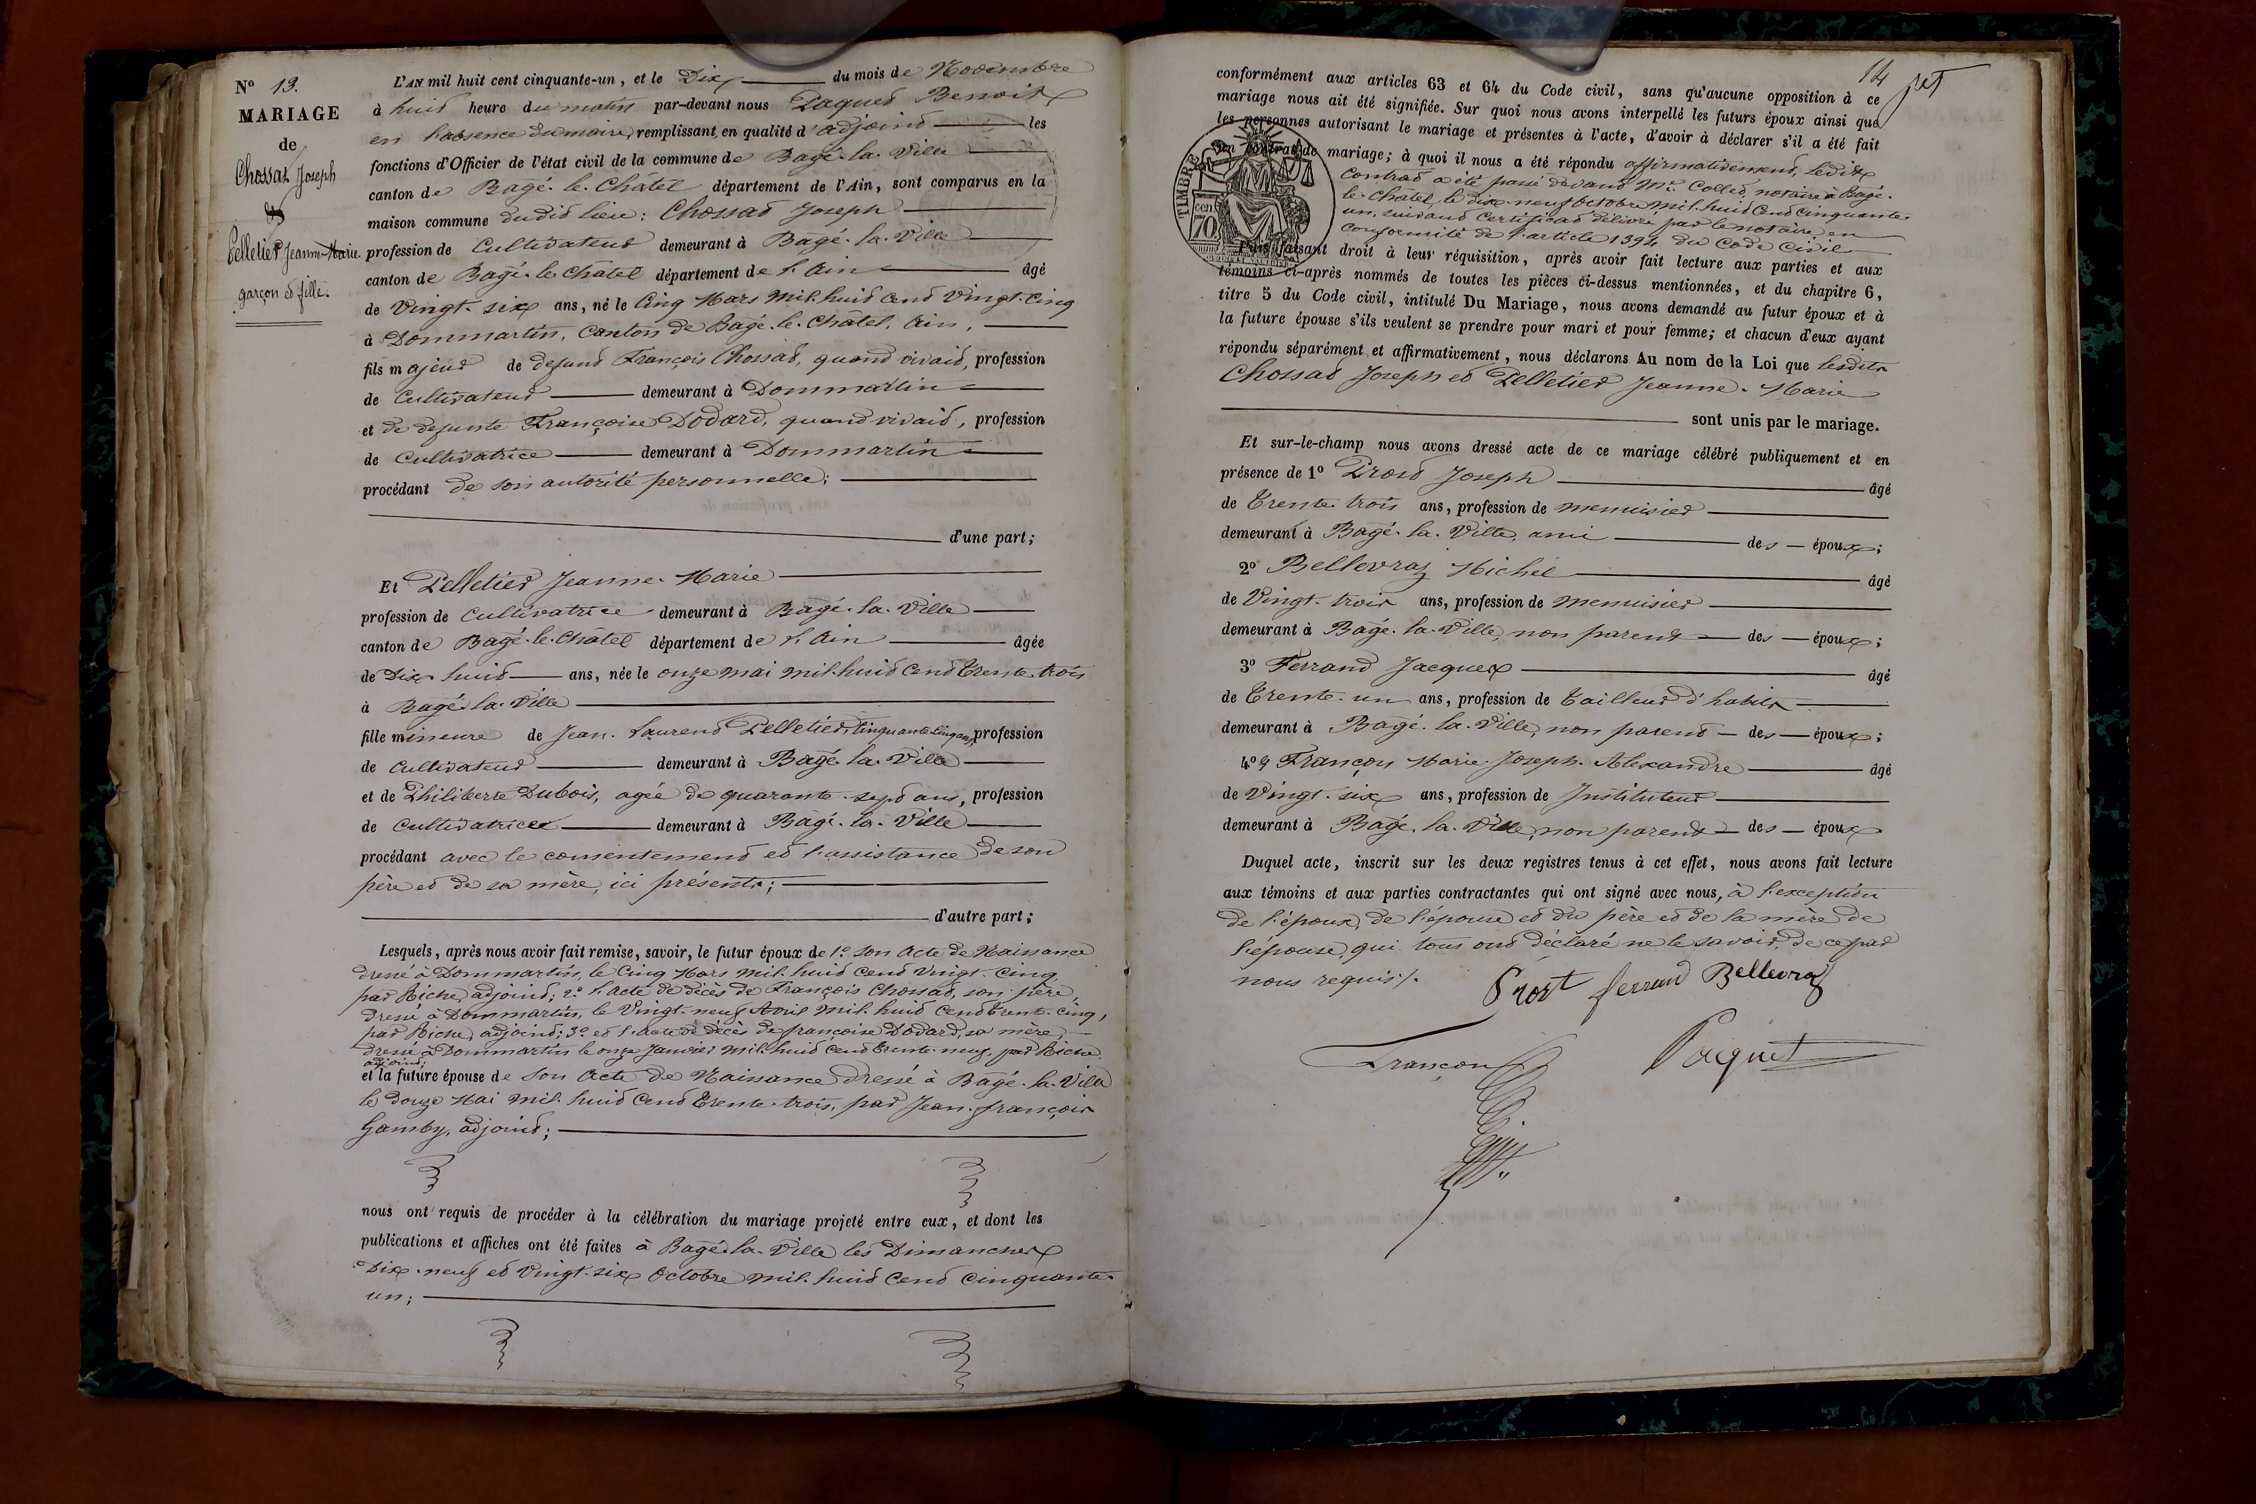 N° 13.
MARIAGE
de
Chossat Joseph
et
Pelletier Jeanne-Marie
garçon et fille.
L'AN mil huit cent cinquante-un, et le Dix du mois de Novembre
à huit heure du matin par-devant nous Paquet Benoit
en l'absence du maire, remplissant en qualité d'adjoint les
fonctions d'Officier de l'état civil de la commune de Bagé-la-Ville
canton de Bagé-le-Châtel département de l'Ain, sont comparus en la
maison commune dudit lieu: Chossat Joseph
profession de Cultivateur demeurant à Bagé-la-Ville
canton de Bagé-le-Châtel département de l'Ain âgé
de Vingt-six ans, né le Cinq Mars Mil-huit Cent Vingt-Cinq
à Dommartin, Canton de Bagé-le-Châtel, Ain,
fils majeur de defunt François Chossat, quand vivait, profession
de Cultivateur demeurant à Dommartin
et de defunte Françoise Dodard, quand vivait, profession
de Cultivatrice demeurant à Dommartin
procédant de son autorité personnelle;
d'une part;
Et Pelletier Jeanne-Marie
profession de Cultivatrice demeurant à Bagé-la-Ville
canton de Bagé-le-Châtel département de l'Ain âgée
de Dix-huit ans, née le onze mai mil-huit Cent Trente-trois
à Bagé-la-Ville
fille mineure de Jean-Laurent Pelletier, Cinquante Cinq ans, profession
de Cultivateur demeurant à Bagé-la-Ville
et de Philiberte Dubois, agée de quarante-sept ans, profession
de Cultivatrice demeurant à Bagé-la-Ville
procédant avec le consentement et l'assistance de son
père et de sa mère, ici présents;
d'autre part;
Lesquels, après nous avoir fait remise, savoir, le futur époux de 1° son Acte de Naissance
dressé à Dommartin, le Cinq Mars Mil-huit Cent Vingt-Cinq,
par Riche, adjoint; 2° l'acte de décès de François Chossat, son père,
dressé à Dommartin, le Vingt-neuf Avril Mil-huit Cent Trente-Cinq,
par Riche, adjoint; 3° et l'acte de décès de françoise Dodard, sa mère,
dressé à Dommartin le onze Janvier Mil-huit Cent Trente-neuf, par Riche
adjoint;
et la future épouse de son Acte de Naissance dressé à Bagé-la-Ville
le douze Mai Mil-huit Cent Trente-trois, par Jean-françois
Gamby, adjoint;
nous ont requis de procéder à la célébration du mariage projeté entre eux, et dont les
publications et affiches ont été faites à Bagé-la-Ville les Dimanches
Dix-neuf et Vingt-six Octobre Mil-huit Cent Cinquante-
un;
14
conformément aux articles 63 et 64 du Code civil, sans qu'aucune opposition à ce
mariage nous ait été signifiée. Sur quoi nous avons interpellé les futurs époux ainsi que
les personnes autorisant le mariage et présentes à l'acte, d'avoir à déclarer s'il a été fait
un contrat de mariage; à quoi il nous a été répondu affirmativement, ledit
Contrat a été passé devant Me Collet, notaire à Bagé-
le-Châtel, le dix-neuf Octobre Mil-huit Cent Cinquante-
un, suivant Certificat délivré par le notaire en
conformité de l'article 1394 du Code Civil
TIMBRE
70
Puis faisant droit à leur réquisition, après avoir fait lecture aux parties et aux
témoins ci-après nommés de toutes les pièces ci-dessus mentionnées, et du chapitre 6,
titre 5 du Code civil, intitulé Du Mariage, nous avons demandé au futur époux et à
la future épouse s'ils veulent se prendre pour mari et pour femme; et chacun d'eux ayant
répondu séparément et affirmativement, nous déclarons Au nom de la Loi que lesdits
Chossat Joseph et Pelletier Jeanne-Marie
sont unis par le mariage.
Et sur-le-champ nous avons dressé acte de ce mariage célébré publiquement et en
présence de 1° Prost Joseph âgé
de Trente-trois ans, profession de menuisier
demeurant à Bagé-la-Ville, ami des époux;
2° Bellevrat Michel âgé
de Vingt-trois ans, profession de menuisier
demeurant à Bagé-la-Ville, non parent des époux;
3° Ferrand Jacques âgé
de Trente-un ans, profession de Tailleur d'habits
demeurant à Bagé-la-Ville, non parent des époux;
4° Françon Marie-Joseph-Alexandre âgé
de Vingt-six ans, profession de Instituteur
demeurant à Bagé-la-Ville, non parent des époux
Duquel acte, inscrit sur les deux registres tenus à cet effet, nous avons fait lecture
aux témoins et aux parties contractantes qui ont signé avec nous, à l'exception
de l'époux, de l'épouse et du père et de la mère de
l'épouse, qui tous ont déclaré ne le savoir, de ce par
nous requis./.
Prost ferrand Bellevrat
Françon Paquet